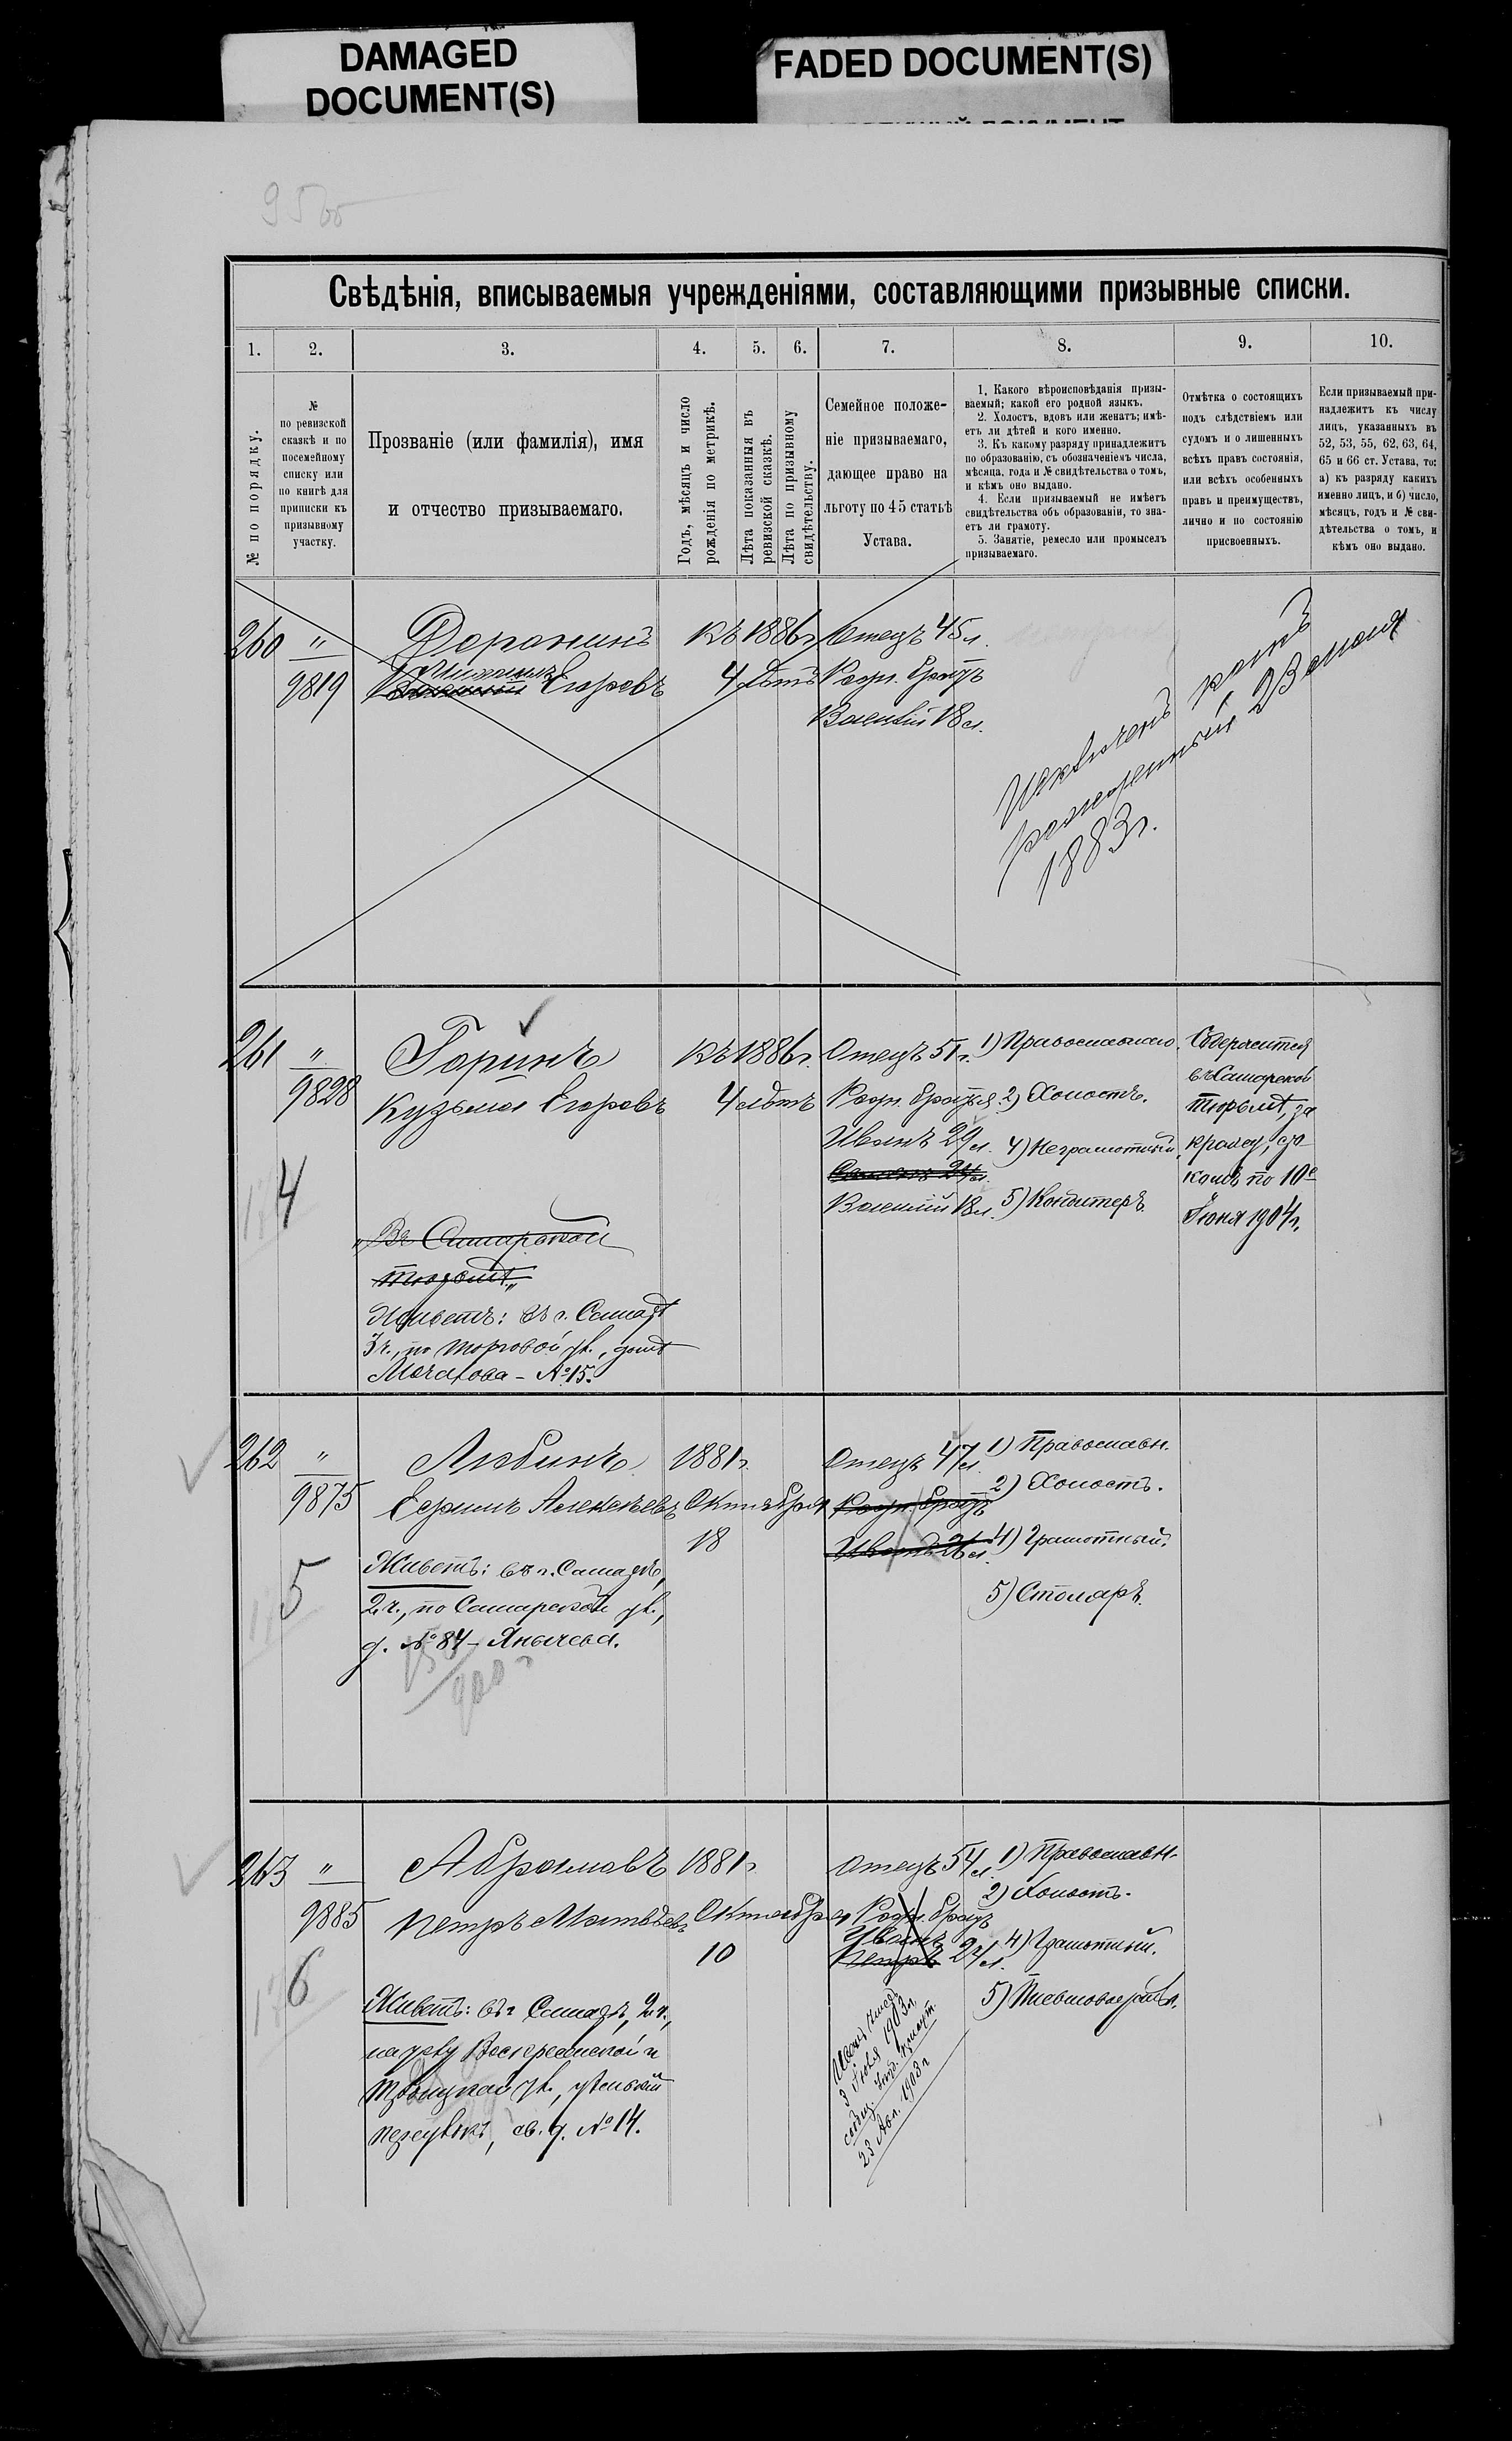 DAMAGED
DOCUMENT(S)
FADED DOCUMENT(S)
Свѣдѣнія, вписываемыя учрежденіями, составляющими призывные списки.
1. 2. 3. 4. 5. 6. 7. 8. 9. 10.
№ по порядку.
№
по ревизской
сказкѣ и по
посемейному
списку или
по книгѣ для
приписки къ
призывному
участку.
Прозваніе (или фамилія), имя
и отчество призываемаго.
Годъ, мѣсяцъ и число
рожденія по метрикѣ.
Лѣта показанныя въ
ревизской сказкѣ.
Лѣта по призывному
свидѣтельству.
Семейное положе-
ніе призываемаго,
дающее право на
льготу по 45 статьѣ
Устава.
1. Какого вѣроисповѣданія призы-
ваемый; какой его родной языкъ.
2. Холостъ, вдовъ или женатъ; имѣ-
етъ ли дѣтей и кого именно.
3. Къ какому разряду принадлежитъ
по образованію, съ обозначеніемъ числа,
мѣсяца, года и № свидѣтельства о томъ,
и кѣмъ оно выдано.
4. Если призываемый не имѣетъ
свидѣтельства объ образованіи, то зна-
етъ ли грамоту.
5. Занятіе, ремесло или промыселъ
призываемаго.
Отмѣтка о состоящихъ
подъ слѣдствіемъ или
судомъ и о лишенныхъ
всѣхъ правъ состоянія,
или всѣхъ особенныхъ
правъ и преимуществъ,
лично и по состоянію
присвоенныхъ.
Если призываемый при-
надлежитъ къ числу
лицъ, указанныхъ въ
52, 53, 55, 62, 63, 64,
65 и 66 ст. Устава, то:
а) къ разряду какихъ
именно лицъ, и б) число,
мѣсяцъ, годъ и № сви-
дѣтельства о томъ, и
кѣмъ оно выдано.
260 "
9819
Доронинъ
Егоровъ
Къ 1886 г.
4 лѣтъ
Отецъ 45 л.
Родн. братъ
Василій 18 л.
Исключенъ какъ
рожденный 23 мая
1883 г.
261 "
9828
4
Горинъ
Кузьма Егоровъ
"Въ Самарской
тюрьмѣ"
Живетъ: въ г. Самарѣ
3 ч., по Торговой ул., домъ
№ 15.
Къ 1886 г.
4 лѣтъ
Отецъ 51 г.
Родн. братья
Иванъ 29 л.
Василій 18 л.
1) Православнаго.
2) Холостъ.
4) Неграмотный.
5) Кондитеръ.
Содержится
въ Самарской
тюрьмѣ, за
кражу, сро
комъ по 10е
Іюня 1904 г.
262 "
9875
5
Любинъ
Алексѣевъ
Живетъ: въ г. Самарѣ,
2 ч., по Самарской ул.,
д. № 84 – Янычева.
1881 г.
Октября
18
Отецъ 47 л.
Родн. братъ
Иванъ 26 л.
1) Православн.
2) Холостъ.
4) Грамотный.
5) Столяръ.
263 "
9885
6
Абрамовъ
Петръ Матвѣевъ
Живетъ: въ г. Самарѣ, 2 ч.,
на углу Воскресенской и
Троицкой ул.,
переулокъ, св. д. № 14.
1881 г.
Октября
10
Отецъ 54 л.
Родн. братъ
Иванъ
Петръ 24 л.
1) Православн.
2) Холостъ.
4) Грамотный.
Иванъ
1903 г.
23 Авг. 1903 г.